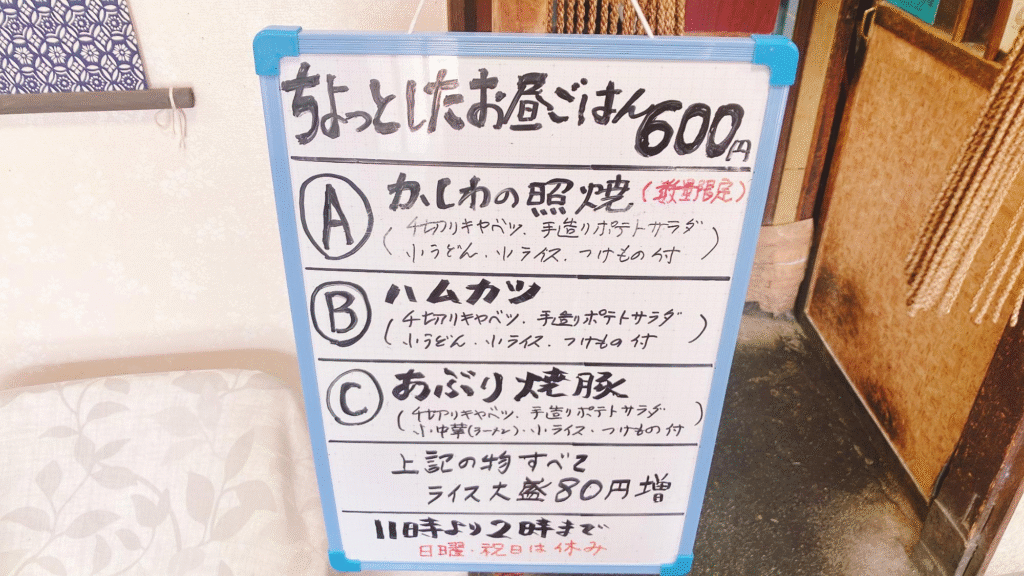 ちょっとしたお昼ごはん600円
Ⓐ かしわの照焼(数量限定)
(千切りキャベツ、手造りポテトサラダ
小うどん・小ライス・つけもの付)
Ⓑ ハムカツ
(千切りキャベツ、手造りポテトサラダ
小うどん・小ライス・つけもの付)
Ⓒ あぶり焼豚
(千切りキャベツ、手造りポテトサラダ
小・中華(ラーメン)・小ライス・つけもの付)
上記の物すべて
ライス大盛80円増
11時より2時まで
日曜・祝日は休み